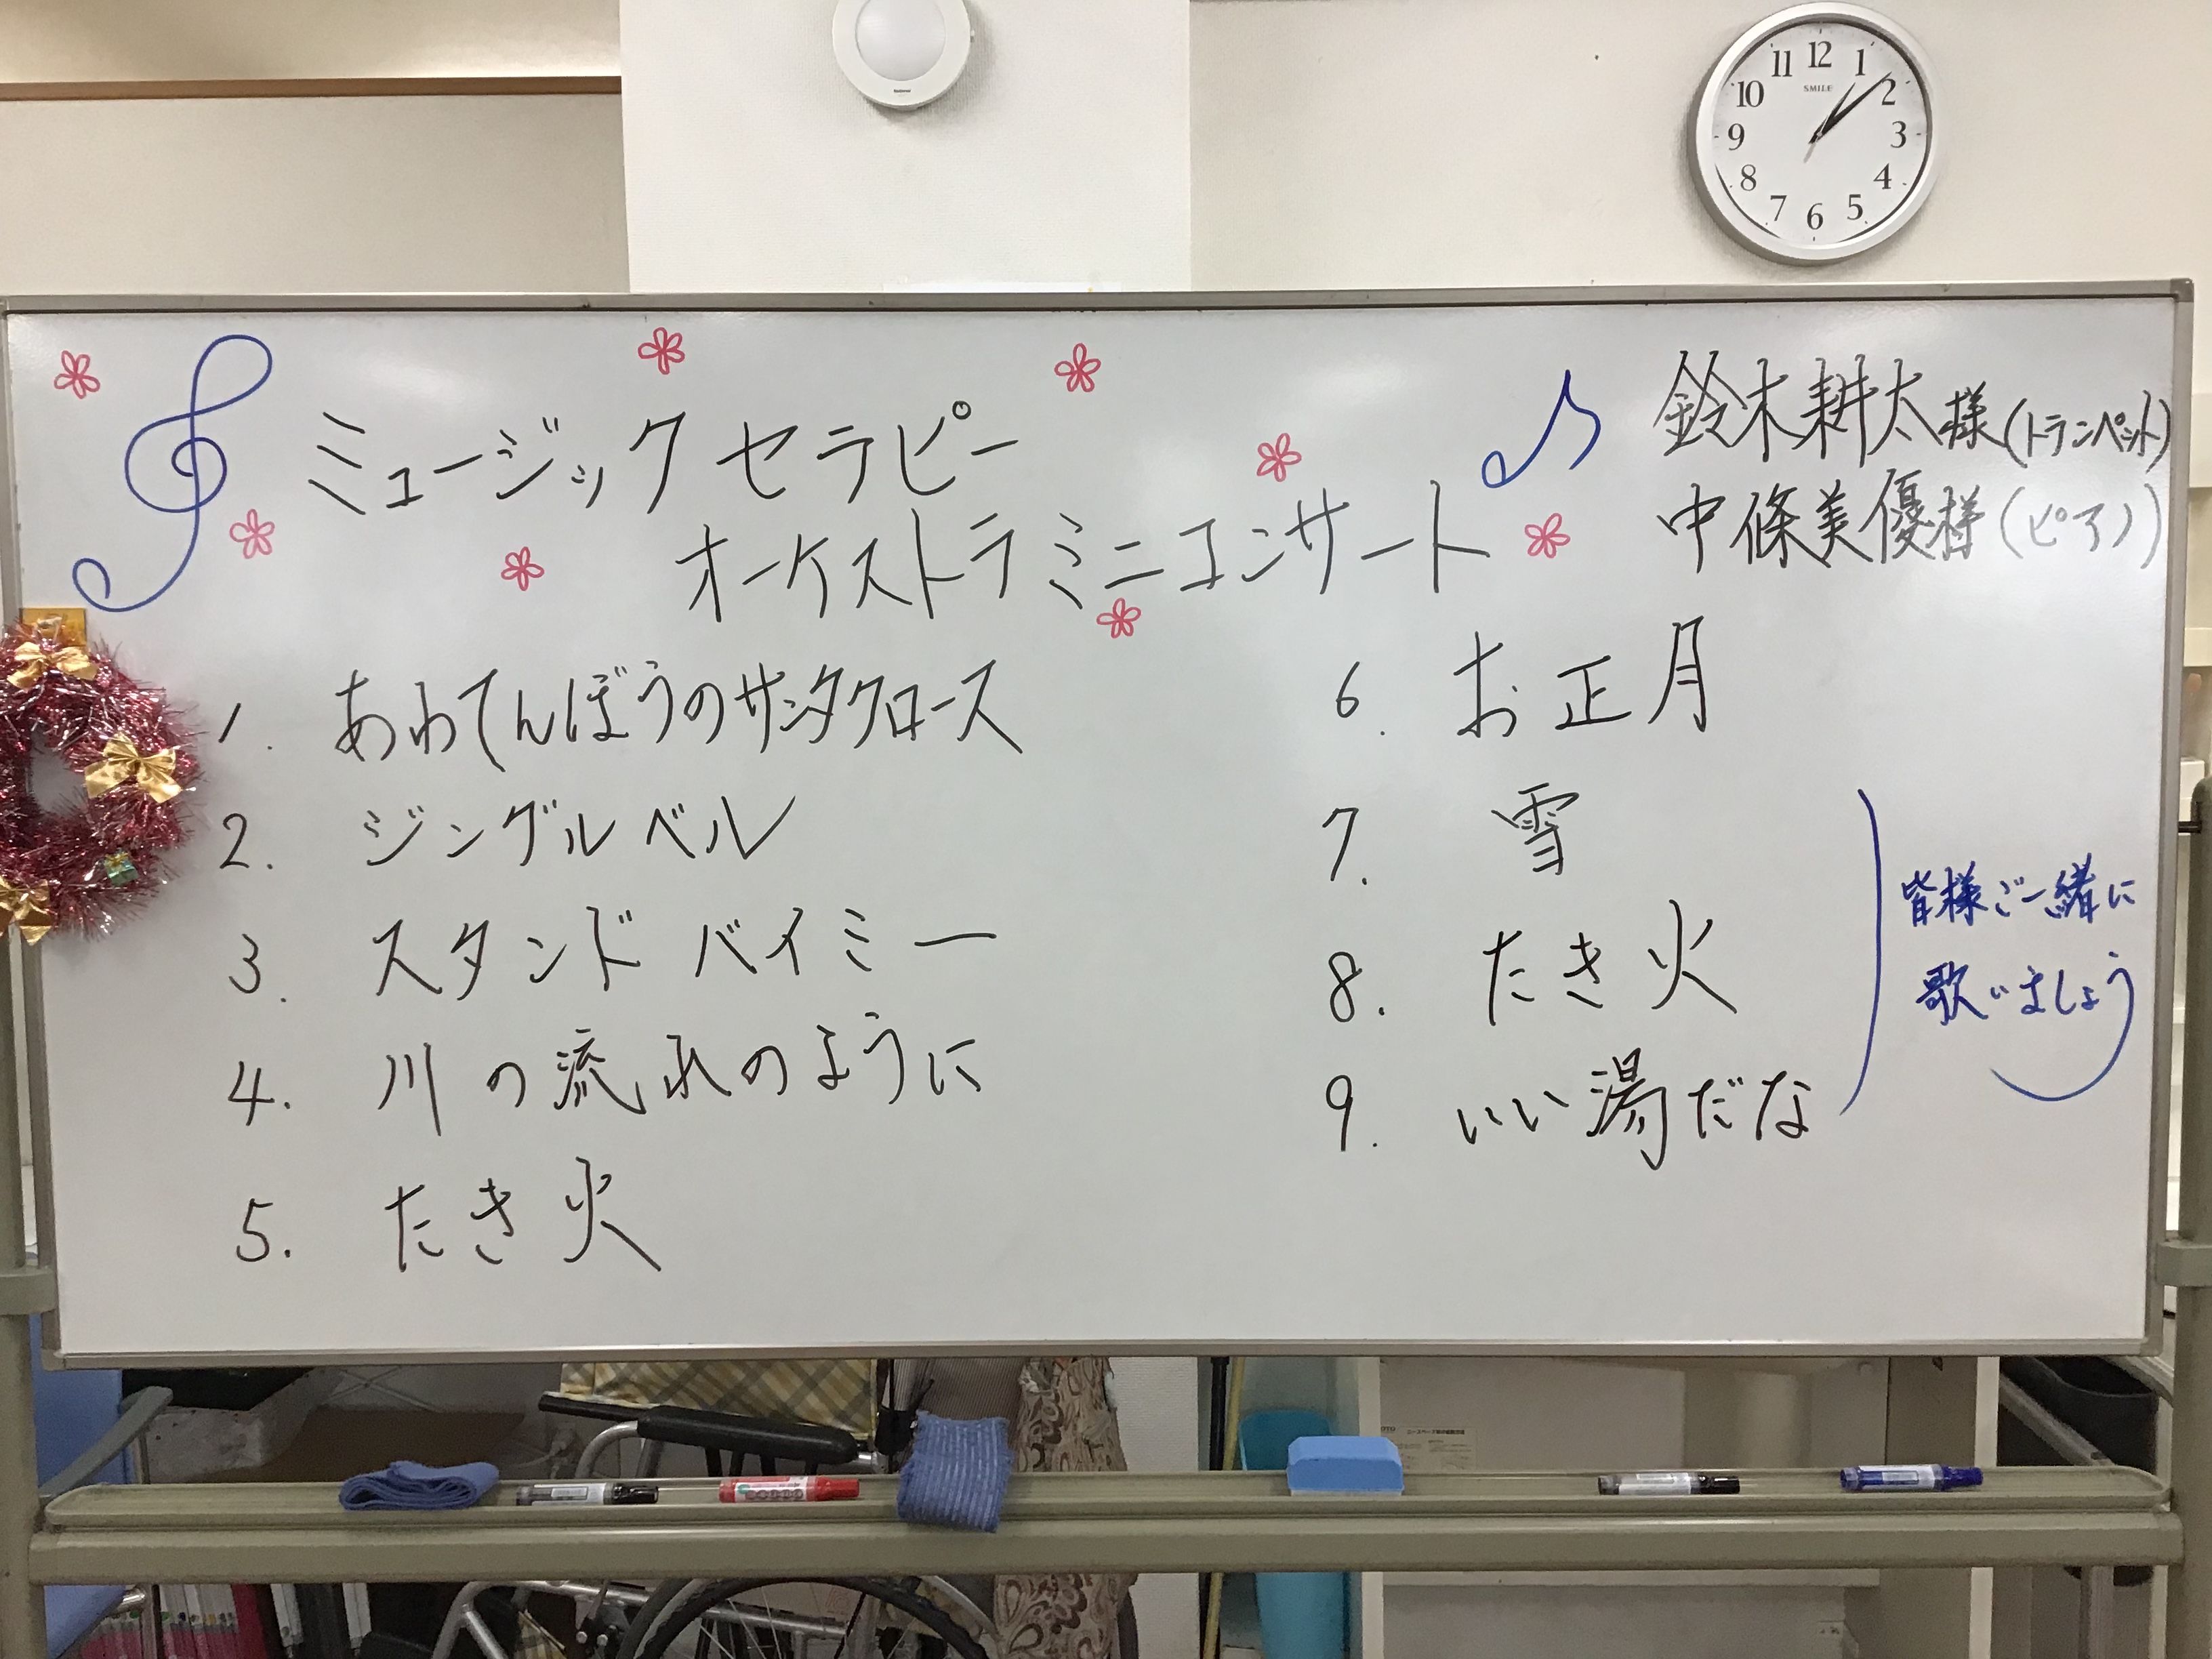 12
1
2
3
4
5
6
7
8
9
10
11
SMILE
National
ミュージックセラピー
オーケストラミニコンサート
鈴木耕太様(トランペット)
中條美優様(ピアノ)
1. あわてんぼうのサンタクロース
2. ジングルベル
3. スタンドバイミー
4. 川の流れのように
5. たき火
6. お正月
7. 雪
8. たき火
9. いい湯だな
皆様ご一緒に
歌いましょう